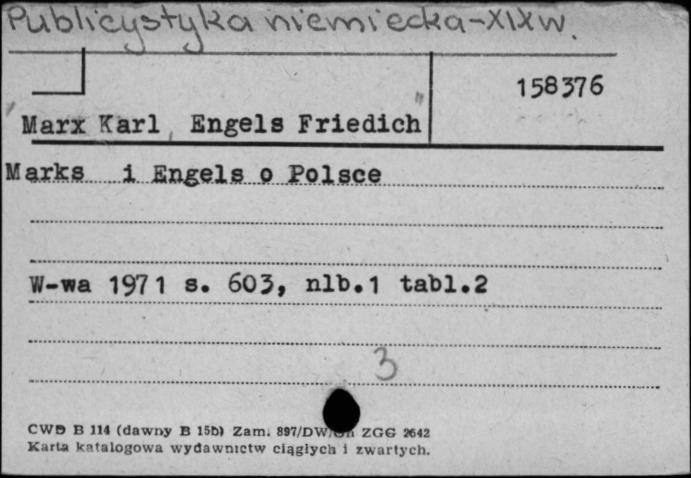 Publicystyka niemiecka-XIXw.
158376
Marx Karl, Engels Friedich
Marks i Engels o Polsce
W-wa 1971 s. 603, nlb.1 tabl.2
3
CWD B 114 (dawny B 15b) Zam. 897/DW/ ZGG 2642
Karta katalogowa wydawnictw ciągłych i zwartych.